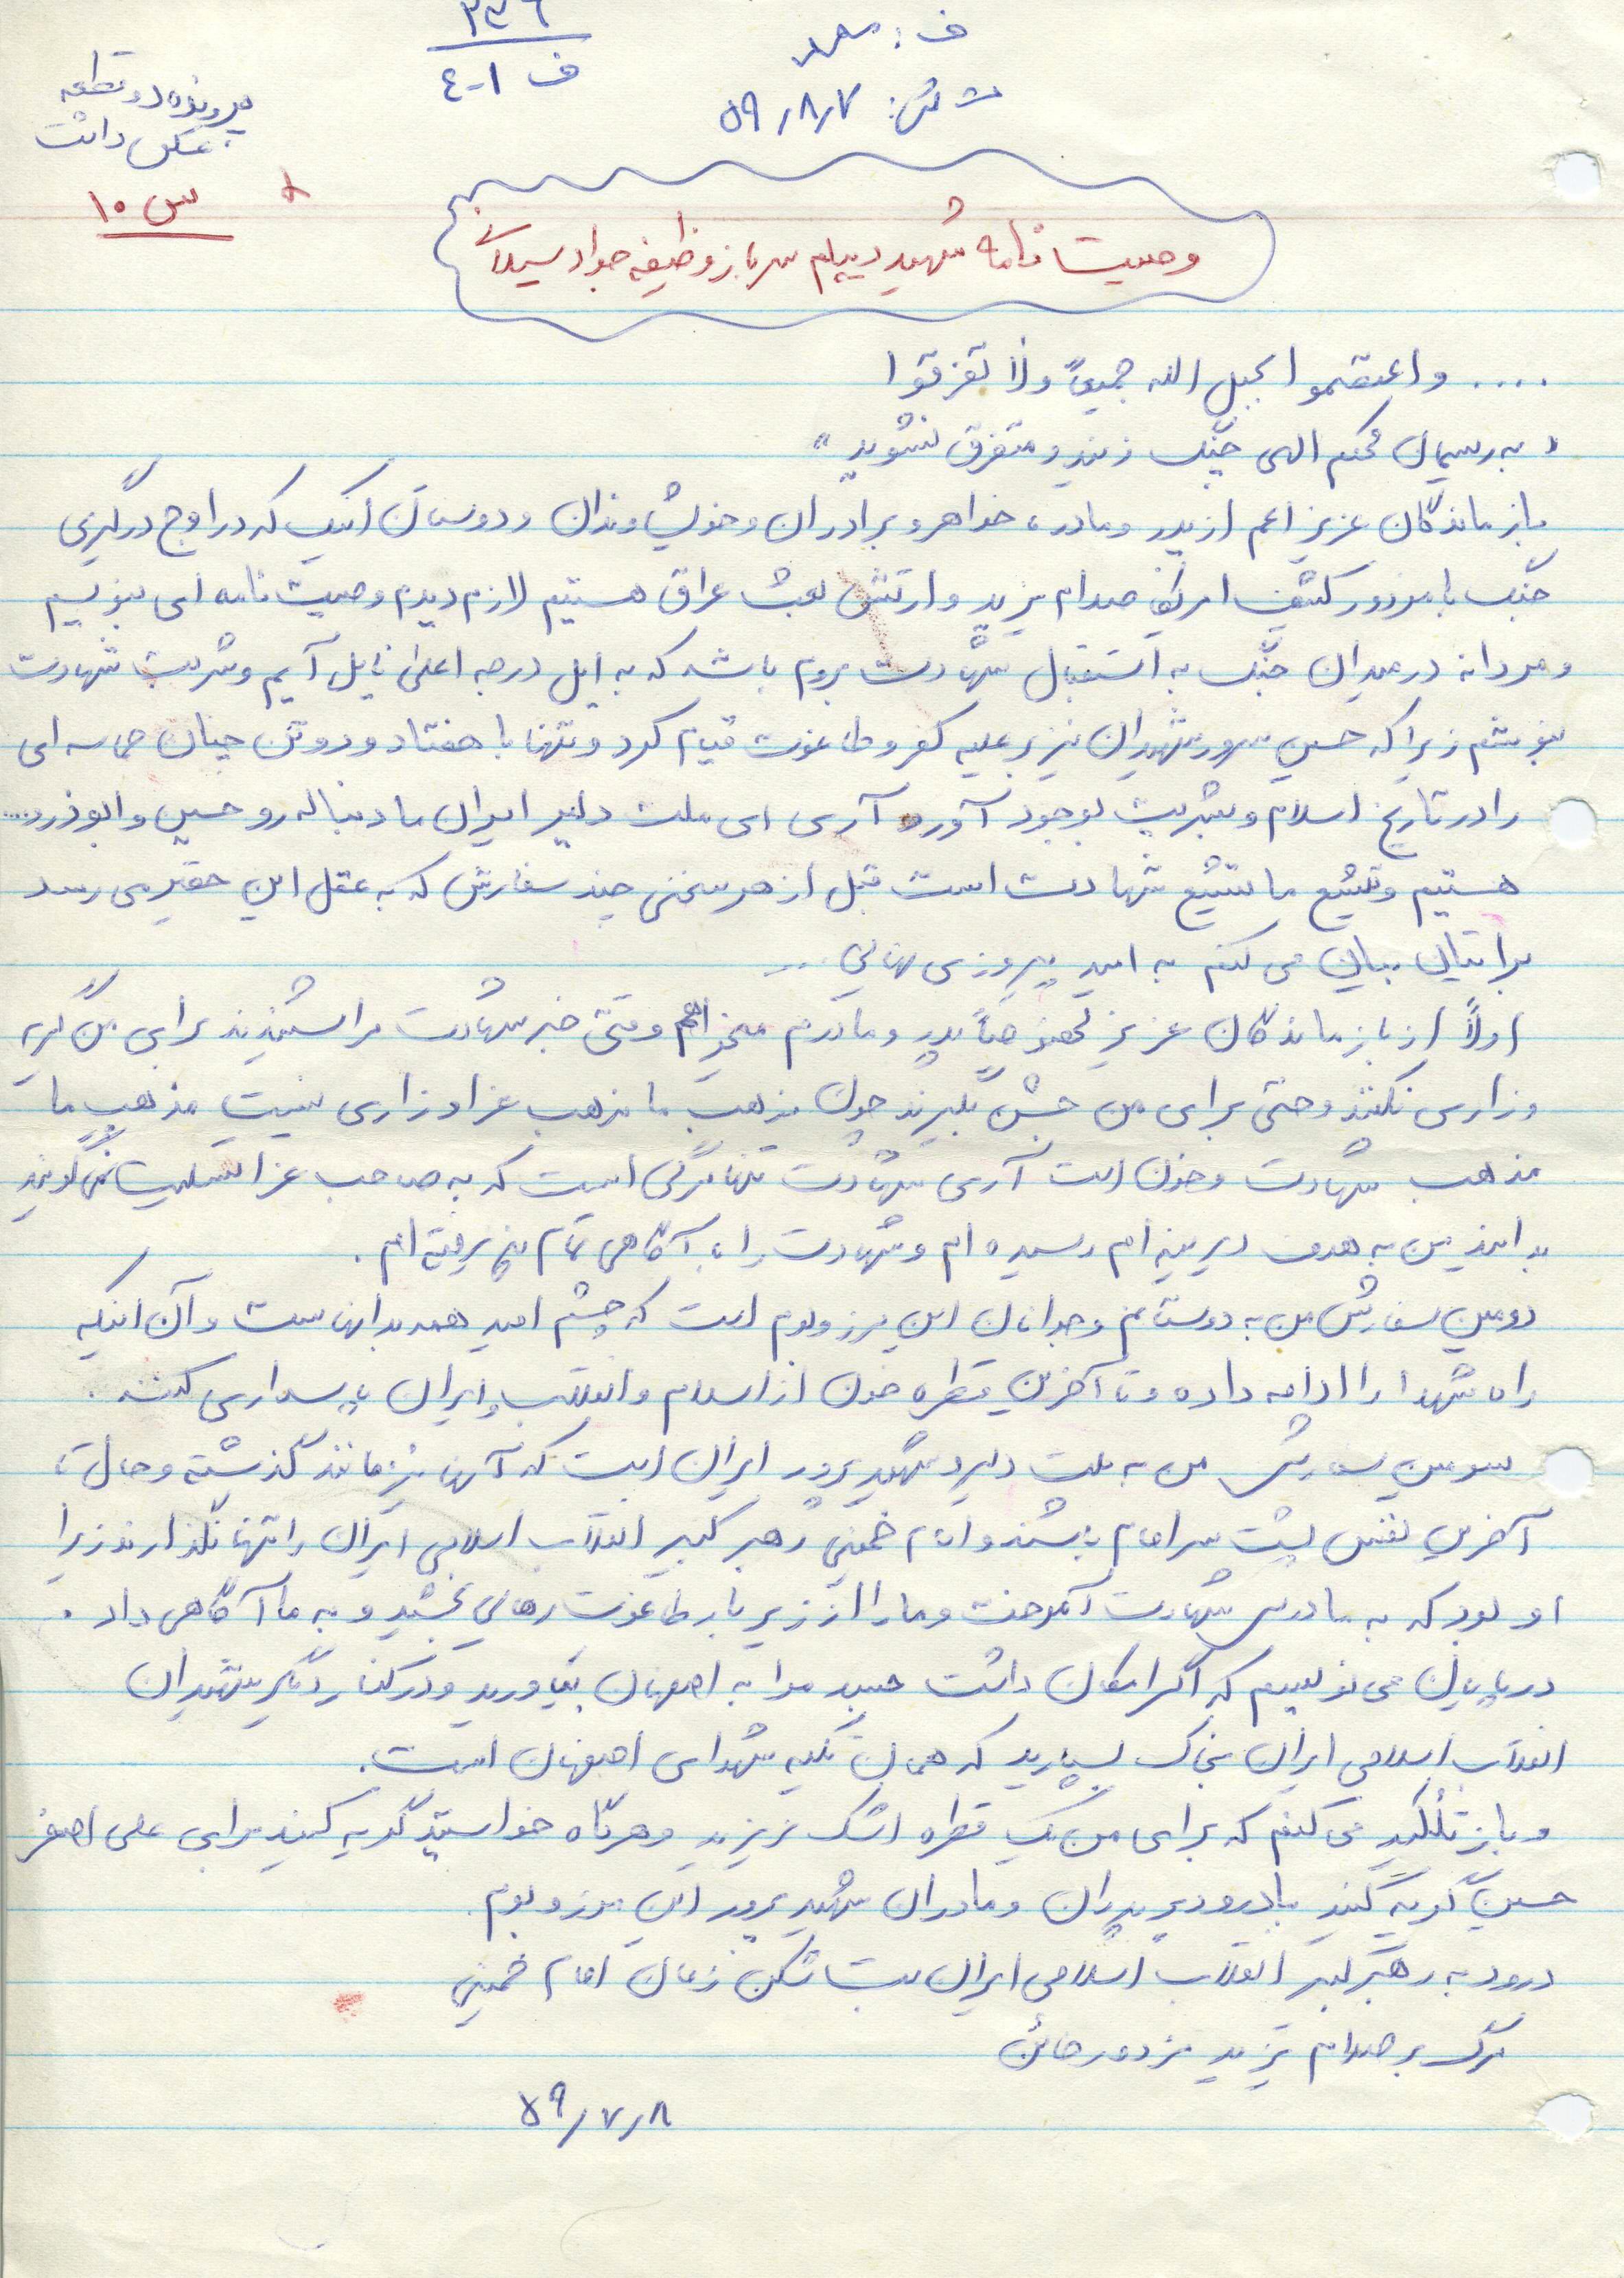 ۳۳۶
ف ۴-۱
ف: معبر
ت ش: ۵۹/۸/۷
پرونده دو قطعه
عکس داشت
س ۱۰
وصیت نامه شهید دیپلم سرباز وظیفه جواد
.... واعتصموا بحبل الله جمیعاً ولا تفرقوا
« به ریسمان محکم الهی چنگ زنید و متفرق نشوید »
بازماندگان عزیز اعم از پدر و مادر، خواهر و برادران و خویشاوندان و دوستان اینک که در اوج درگیری
جنگ با مزدور کثیف امریکا صدام یزید و ارتش بعث عراق هستیم لازم دیدم وصیت نامه ای بنویسم
و مردانه در میدان جنگ به استقبال شهادت بروم باشه که به این درجه اعلی نایل آیم و شربت شهادت
بنوشم زیرا که حسین سرور شهیدان نیز بر علیه کفر و طاغوت قیام کرد و تنها با هفتاد و دو تن چنان حماسه ای
را در تاریخ اسلام و بشریت بوجود آورد آری ای ملت دلیر ایران ما دنباله رو حسین و ابوذر و....
هستیم و تشیع ما تشیع شهادت است قبل از هر سخنی چند سفارش که به عقل این حقیر می رسد
برایتان بیان می کنم به امید پیروزی نهایی ...
اولاً از بازماندگان عزیز بخصوصاً پدر و مادرم میخواهم وقتی خبر شهادت مرا شنیدند برای من گریه
و زاری نکنند و حتی برای من جشن بگیرند چون مذهب ما مذهب عزا و زاری نیست مذهب ما
مذهب شهادت و خون است آری شهادت تنها مرگی است که به صاحب عزا تسلیت نمی گویند
بدانید من به هدف دیرینه ام رسیده ام و شهادت را با آگاهی تمام پذیرفته ام .
دومین سفارش من به دوستانم و جوانان این مرز و بوم است که چشم امید همه بدانهاست و آن اینکه
راه شهدا را ادامه داده و تا آخرین قطره خون از اسلام و انقلاب ایران پاسداری کنند .
سومین سفارش من به ملت دلیر و شهید پرور ایران است که آنها نیز مانند گذشته و حال تا
آخرین نفس پشت سر امام باشند و امام خمینی رهبر کبیر انقلاب اسلامی ایران را تنها نگذارند زیرا
او بود که به ما درس شهادت آموخت و ما را از زیر بار طاغوت رهایی بخشید و به ما آگاهی داد .
در پایان می نویسم که اگر امکان داشت جسد مرا به اصفهان بیاورید و در کنار دیگر شهیدان
انقلاب اسلامی ایران بخاک بسپارید که همان تکیه شهدای اصفهان است.
و باز تأکید می کنم که برای من یک قطره اشک نریزید و هرگاه خواستید گریه کنید برای علی اصغر
حسین گریه کنید با درود بر پدران و مادران شهید پرور این مرز و بوم .
درود به رهبر کبیر انقلاب اسلامی ایران بت شکن زمان امام خمینی
مرگ بر صدام یزید مزدور خائن
۵۹/۷/۸